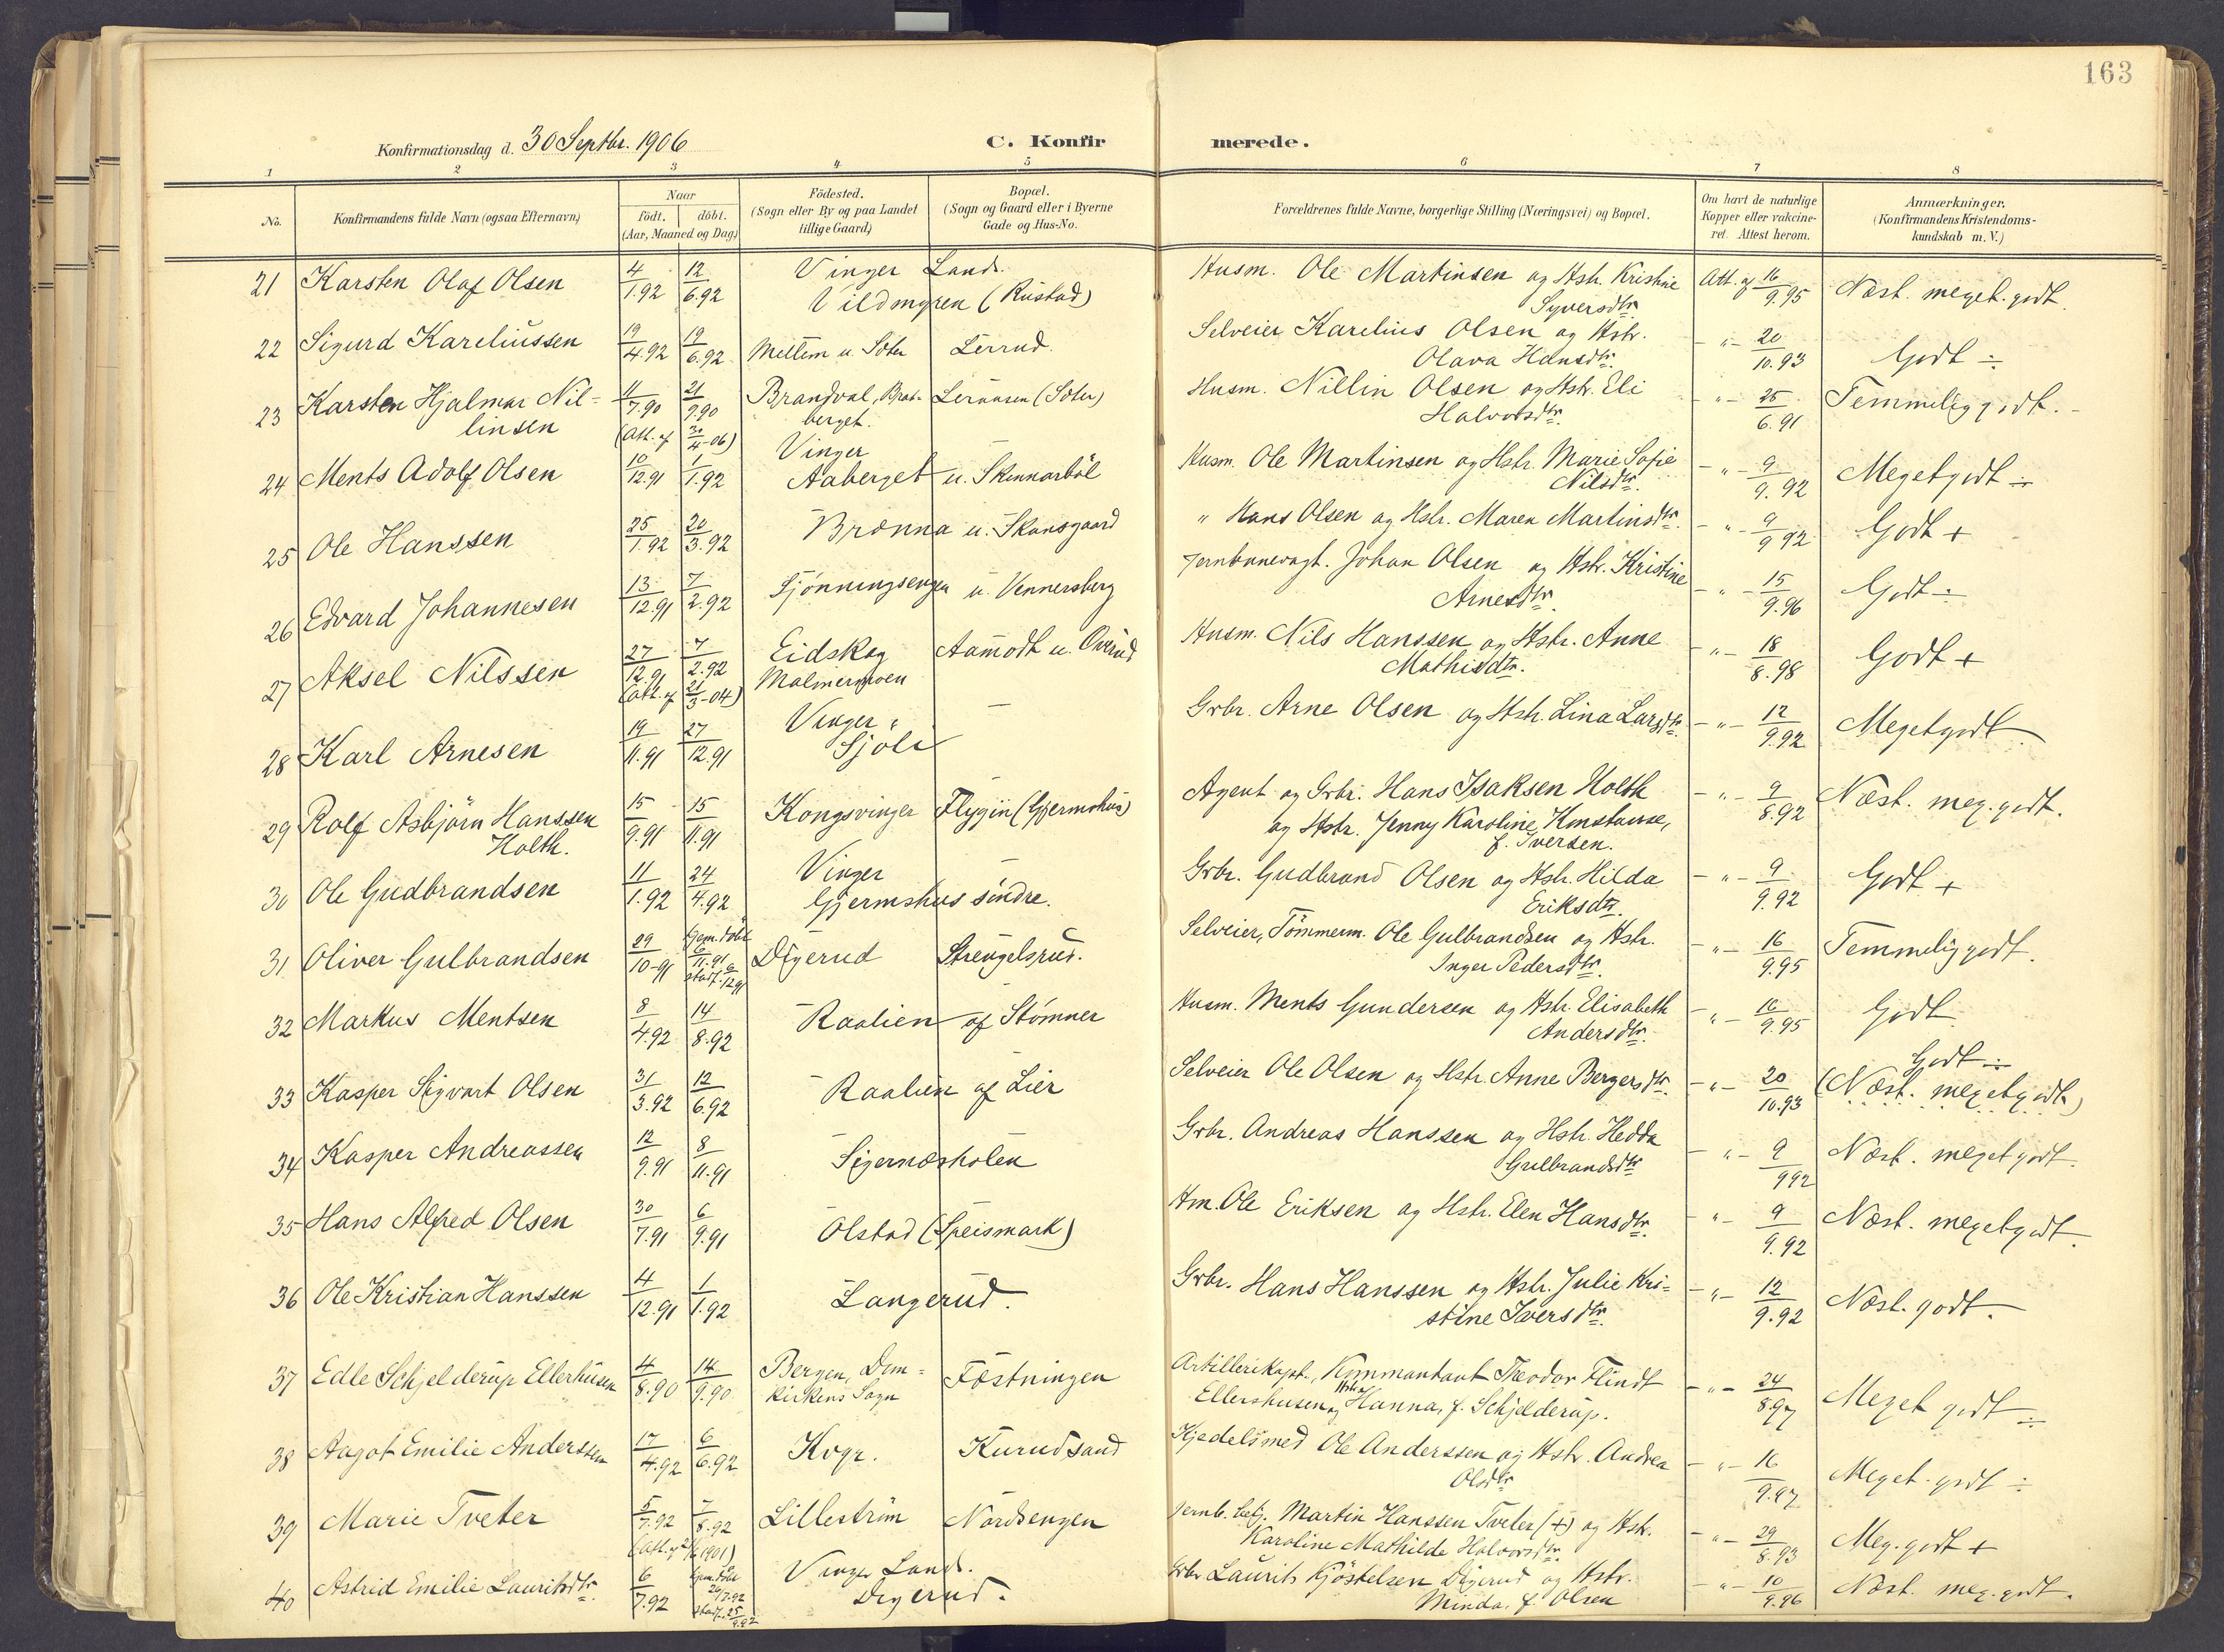 163
Konfirmationsdag d. 30 Septbr. 1906
C. Konfirmerede.
1 2 3 4 5 6 7 8
No. Konfirmandens fulde Navn (ogsaa Efternavn) Naar födt. döbt. (Aar, Maaned og Dag) Födested. (Sogn eller By og paa Landet tillige Gaard) Bopæl. (Sogn og Gaard eller i Byerne Gade og Hus-No. Forældrenes fulde Navne, borgerlige Stilling (Næringsvei) og Bopæl. Om havt de naturlige Kopper eller vakcineret. Attest herom. Anmærkninger. (Konfirmandens Kristendomskundskab m. V.)
21 Karsten Olaf Olsen 4/1.92 12/6.92 Vinger Lands. Husm. Ole Martinsen og Hstr. Kristine Att. af 16/9.95 Næst. meget godt
Vildmyren (Rustad) Syversdtr.
22 Sigurd Kareliussen 19/4.92 19/6.92 Mellem u. Soter Lerrud. Selveier Karelius Olsen og Hstr. -"- 20/10.93 Godt ÷
Olava Hansdtr.
23 Karsten Hjalmar Nil= 11/7.90 21/9.90 Brandval, Husm. Nillin Olsen og Hstr. Eli -"- 25/6.91 Temmelig godt.
linsen (Att. af 30/4-06) berget. (Soter) Halvorsdtr.
24 Ments Adolf Olsen 10/12.91 1/1.92 Vinger Husm. Ole Martinsen og Hstr. Marie Sofie -"- 9/9.92 Megetgodt ÷
Aaberget u. Skinnarböl Nilsdtr.
25 Ole Hanssen 25/1.92 20/3.92 Brænna u. Skansgaard " Hans Olsen og Hstr. Maren Martinsdtr. -"- 9/9 92 Godt +
26 Edvard Johannesen 13/12.91 7/2.92 Sjönningsengen u. Vennersberg Jernbanevagt. Johan Olsen og Hstr. Kristine -"- 15/9.96 Godt ÷
Arnesdtr.
27 Aksel Nilssen 27/12.91 7/2.92 Eidskog Aamodt u. Overud Husm. Nils Hanssen og Hstr. Anne -"- 18/8.98 Godt +
(att. af 21/3-04) Malmermoen Mathisdtr.
28 Karl Arnesen 19/11.91 27/12.91 Vinger Grbr. Arne Olsen og Hstr. Lina Larsdtr. -"- 12/9.92 Megetgodt
Sjöli
29 Rolf Asbjörn Hanssen 15/9.91 15/11.91 Kongsvinger Flygin (Gjermshus) Agent og Grbr. Hans Isaksen Holth -"- 9/8.92 Næst. meg. godt.
Holth. og Hstr. Jenny Karoline Konstanse,
f. Iversen.
30 Ole Gudbrandsen 11/1.92 24/4.92 Vinger Grbr. Gudbrand Olsen og Hstr. Hilda -"- 9/9.92 Godt +
Gjermshus söndre. Eriksdtr.
31 Oliver Gulbrandsen 29/10-91 Hjem. döbt 6/11.91 stadf. 12 91 Digerud Strengelsrud. Selveier, Tömmerm. Ole Gulbrandsen og Hstr. -"- 16/9.95 Temmelig godt.
Inger Pedersdtr.
32 Markus Mentsen 8/4.92 14/8.92 Raalien af Stömner Husm. Ments Gundersen og Hstr. Elisabeth -"- 16/9.95 Godt
Andersdtr.
33 Kasper Sigvart Olsen 31/3.92 12/6.92 Raalien af Lier Selveier Ole Olsen og Hstr. Anne Bergersdtr. -"- 20/10.93 Godt ÷
(Næst. megetgodt)
34 Kasper Andreassen 12/9.91 8/11.91 Sigernæsholen Grbr. Andreas Hanssen og Hstr. Hedda -"- 9/9 92 Næst. megetgodt.
Gulbrandsdtr.
35 Hans Alfred Olsen 30/7.91 6/9.91 Olstad (Speismark) Hm. Ole Eriksen og Hstr. Elen Hansdtr. -"- 9/9.92 Næst. megetgodt.
36 Ole Kristian Hanssen 4/12.91 1/1.92 Langerud. Grbr. Hans Hanssen og Hstr. Julie Kri= -"- 12/9.92 Næst. godt.
stine Iversdtr.
37 Edle Schjelderup Ellerhusen 4/8.90 14/9.90 Bergen, Dom= Fæstningen Artillerikapt., Kommandant Theodor Flindt -"- 24/8.97 Meget godt ÷
kirkens Sogn Ellershusen og Hstr. Hanna, f. Schjelderup.
38 Aagot Emilie Anderssen 17/4.92 6/6.92 Kvgr. Kurudsand Kjedelsmed Ole Anderssen og Hstr. Andrea -"- 16/9.97 Meget godt ÷
Olsdtr.
39 Marie Tveter 5/7.92 7/8.92 Lilleström Nordsengen Jernb. betj. Martin Hanssen Tveter (+) og Hstr. -"- 29/8.93 Meg. godt +
(Att. af 1901) Karoline Mathilde Halvorsdtr.
40 Astrid Emilie Lauritsdtr. 6/7.92 Hjem. döbt 20/7.92 stadf. 25/9.92 Vinger Lands. Grbr Laurits Kjöstelsen Digerud og Hstr. -"- 10/9.96 Næst. meg. godt.
Digerud. Minda, f. Olsen